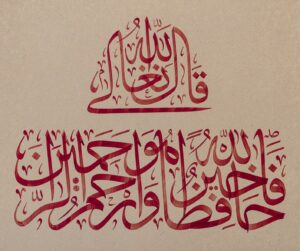 قال الله تعالى
فالله خير حافظا وهو أرحم الراحمين